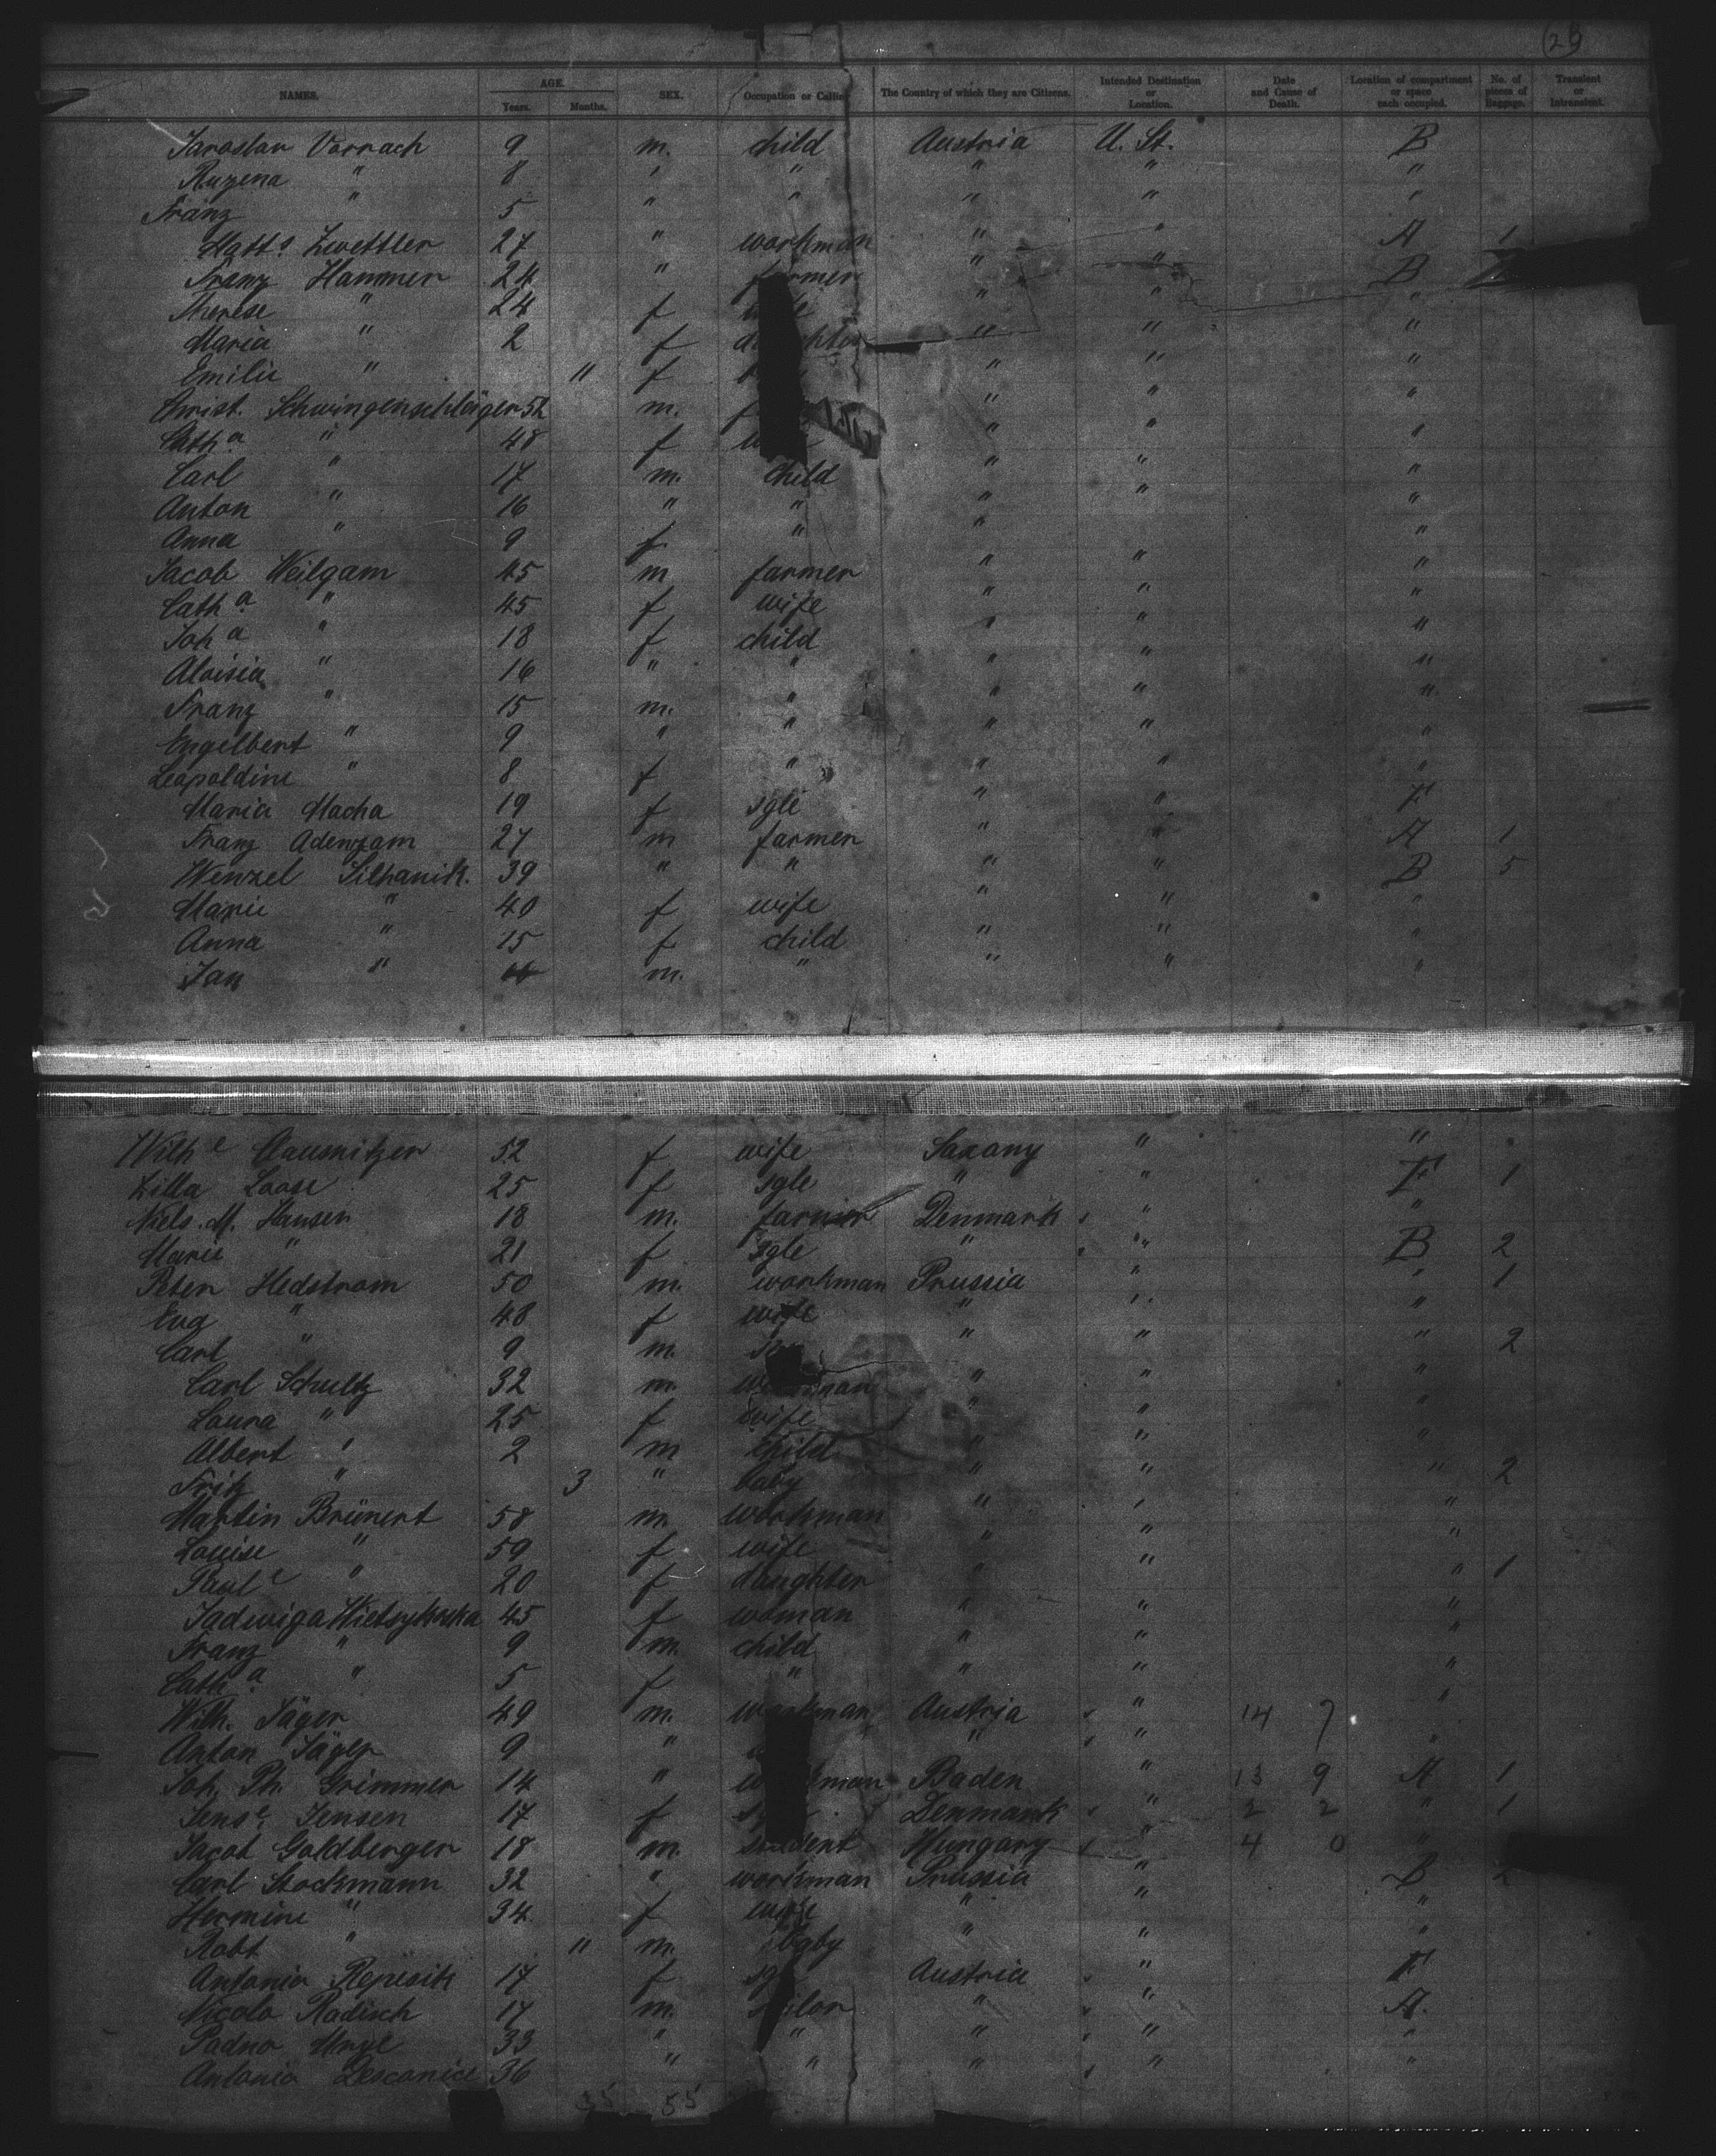 (29
NAMES. AGE. Years. Months. SEX. Occupation or Calling The Country of which they are Citizens. Intended Destination or Location. Date and Cause of Death. Location of compartment or space each occupied. No. of pieces of Baggage. Transient or Intransient.
Jaroslav Vorrach 9 m. child Austria U. St. B
Ruzena " 8 " " " "
Franz " 5 " " " " "
Matts. Zwettler 27 " workman " " A 1
Franz Hammer 24 " farmer " " B
Therese " 24 f " " "
Maria " 2 f daughter " " "
Emilie " 11 f " " "
Christ. Schwingenschlöger 52 m. " " "
Catha " 48 f " " "
Carl " 17 m. child " " "
Anton " 16 " " " " "
Anna " 9 f. " " "
Jacob Weilgam 45 m farmer " " "
Catha " 45 f wife " " "
Joha " 18 f child " " "
Aloisia " 16 " " " " "
Franz " 15 m. " " " "
Engelbert " 9 " " " " "
Leopoldine " 8 f " " " "
Maria Macha 19 f sgle " " F
Franz Adenzam 27 m farmer " " A 1
Wenzel Silhanik. 39 " " " " B 5
Marie " 40 f wife " " "
Anna " 15 f child " " "
Jan " m. " " " "
Wilhe Clausnitzer 52 f wife Saxony " "
Zilla Loose 25 f sgle " " F 1
Niels. M. Hansen 18 m. farmer Denmark " "
Marie " 21 f sgle " " B 2
Peter Hedstrom 50 m. workman Prussia " " 1
Eva " 48 f wife " " "
Carl " 9 m. " " " 2
Carl Schultz 32 m. workman " " "
Laura " 25 f wife " " "
Albert " 2 m child " " "
Fritz " 3 " baby " " " 2
Martin Brünert 58 m. workman " " "
Louise " 59 f wife " " "
Paule " 20 f daughter " " " 1
Jadwiga 45 f woman " " "
Franz " 9 m. child " " "
Catha " 5 f " " " "
Wilh. Jäger 49 m. workman Austria " 14 7 "
Anton Jäger 9 " " " "
Joh. Ph. Grimmer 14 " workman Baden " 13 9 A 1
Jense. Jensen 17 f Denmark " 2 2 " 1
Jacob Goldberger 18 m. student Hungary " 4 0 "
Carl Stockmann 32 " workman Prussia " B 2
Hermine " 34 f wife " " "
Robt " 11 m. baby " " "
Antonia 17 f sgle Austria " F
Nicolo Radisch 17 m. sailor " " A.
Padno 33 " " " " "
Antonio 36 " " " " "
35 55